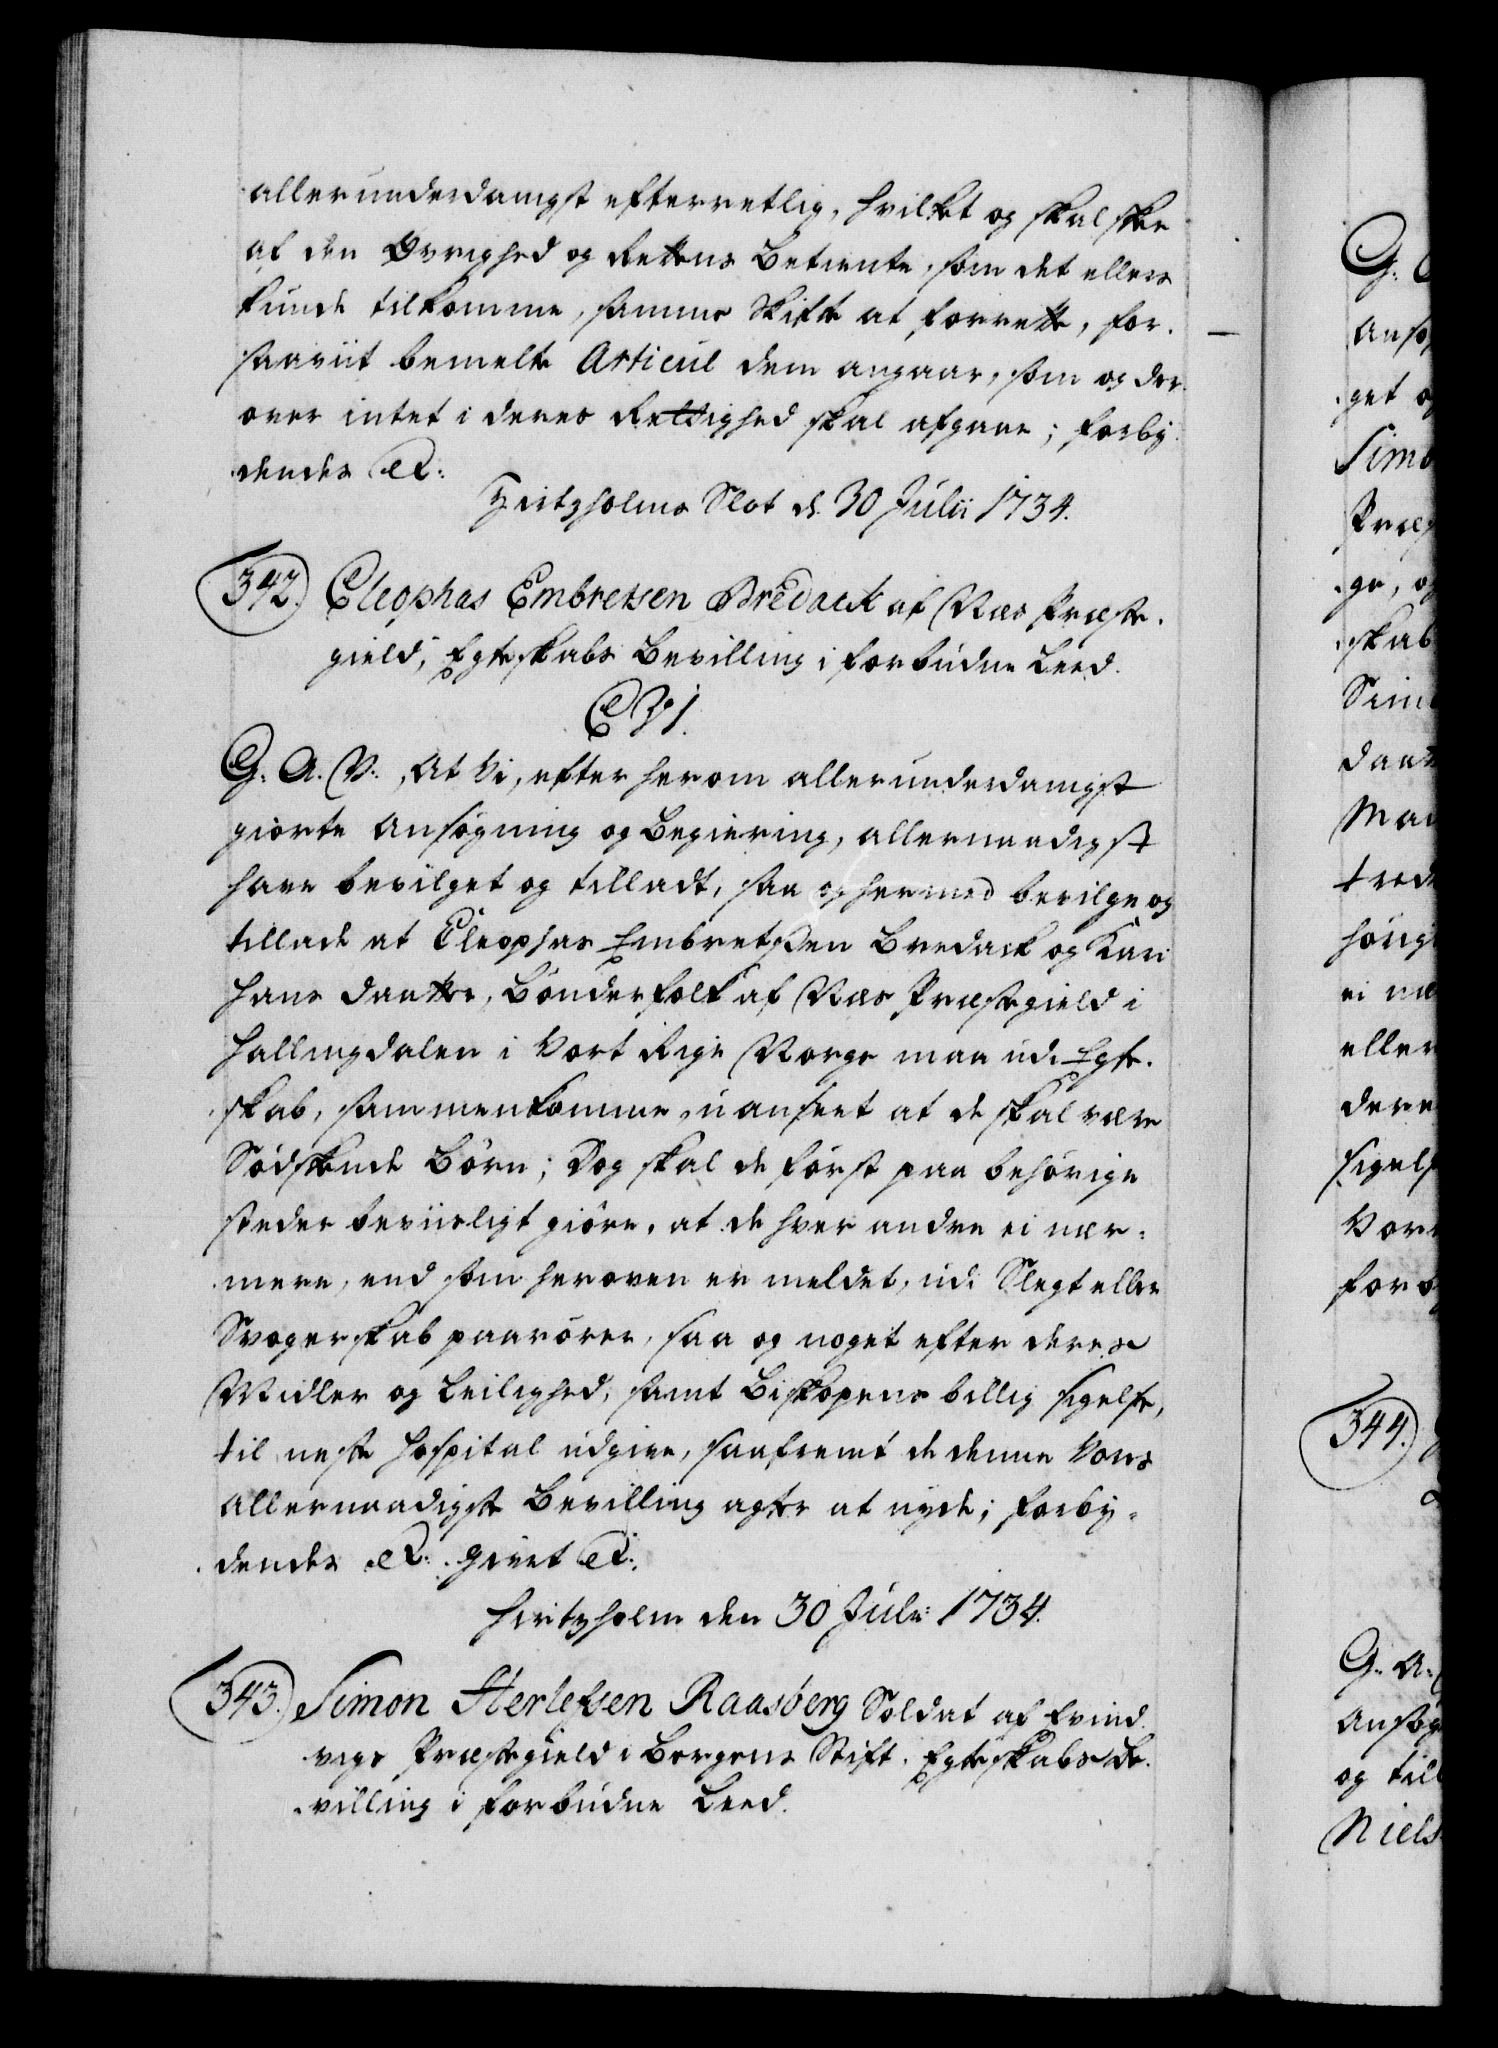 allerunderdanigst efterretlig, hvilket og skal skee
af den Øvrighed og Rettens Betiente, som det ellers
kunde tilkomme, samme Skifte at forrette, for-
saaviit bemelte Articul dem angaar, som og der-
over intet i deres Rettighed skal afgaae; forby-
dendes etc:
Hirtzholms Slot d. 30 Julii 1734.
342. Eleophas Embretsen Bredack af Næs Præste-
gield, Egteskabs Bevilling i forbudne Leed.
C 6.
G. A. V., At Vi, efter herom allerunderdanigst
giorte Ansøgning og Begiering, allernaadigst
have bevilget og tilladt, saa og hermed bevilge og
tillade at Eleophas Embretsen Bredack og Kari
Hans Daatter, Bønderfolk af Næs Præstegield i
Hallingdalen i Vort Rige Norge maa udi Egte-
skab, sammenkomme, uanseet at de skal være
Södskende Börn; Dog skal de först paa behörige
steder beviisligt giöre, at de hver andre ei nær-
mere, end som heroven er meldet, udi Slegt eller
Svogerskab paarörer, saa og noget efter deres
Midler og Leilighed, samt Biskopens billig sigelse,
til neste Hospital udgive, saafremt de denne Vores
allernaadigste Bevilling agter at nyde; forby-
dendes etc: givet etc:
Hirtzholm den 30 Julii 1734.
343. Simon Herlefsen Raasberg Soldat af Evind-
vigs Præstegield i Bergens Stift, Egteskabs Be-
villing i forbudne Leed.
G.
Anso
get og
Simo
Præs
ge, og
skab
Simo
daat
Mar
tred
hörig
ei næ
eller
dere
sigels
Vore
forb
344.
G. A.
Ansög
og till
Niels